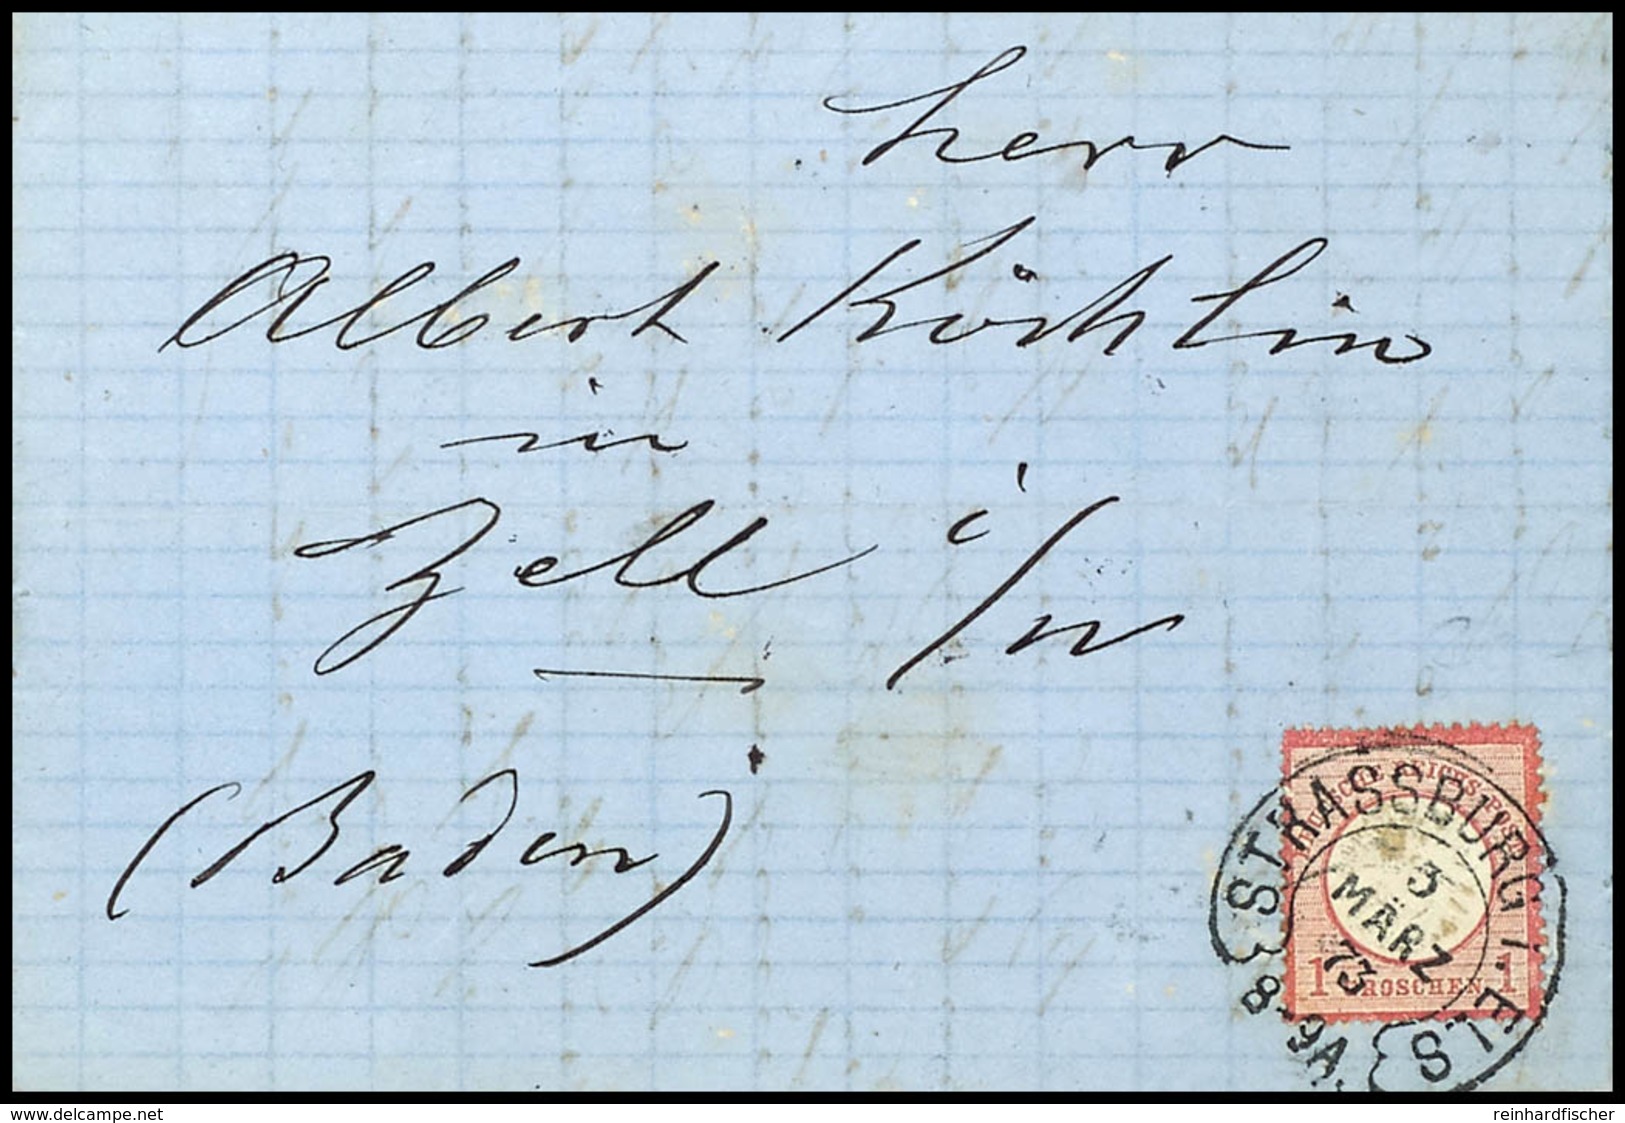 Herr
Albert Köchlin
in
Zell i/W
(Baden)
DEUTSCHE REICHS-POST
STRASSBURG I. ELS
3
MÄRZ
73
8-9A.
1 GROSCHEN 1
www.delcampe.net
reinhardfischer